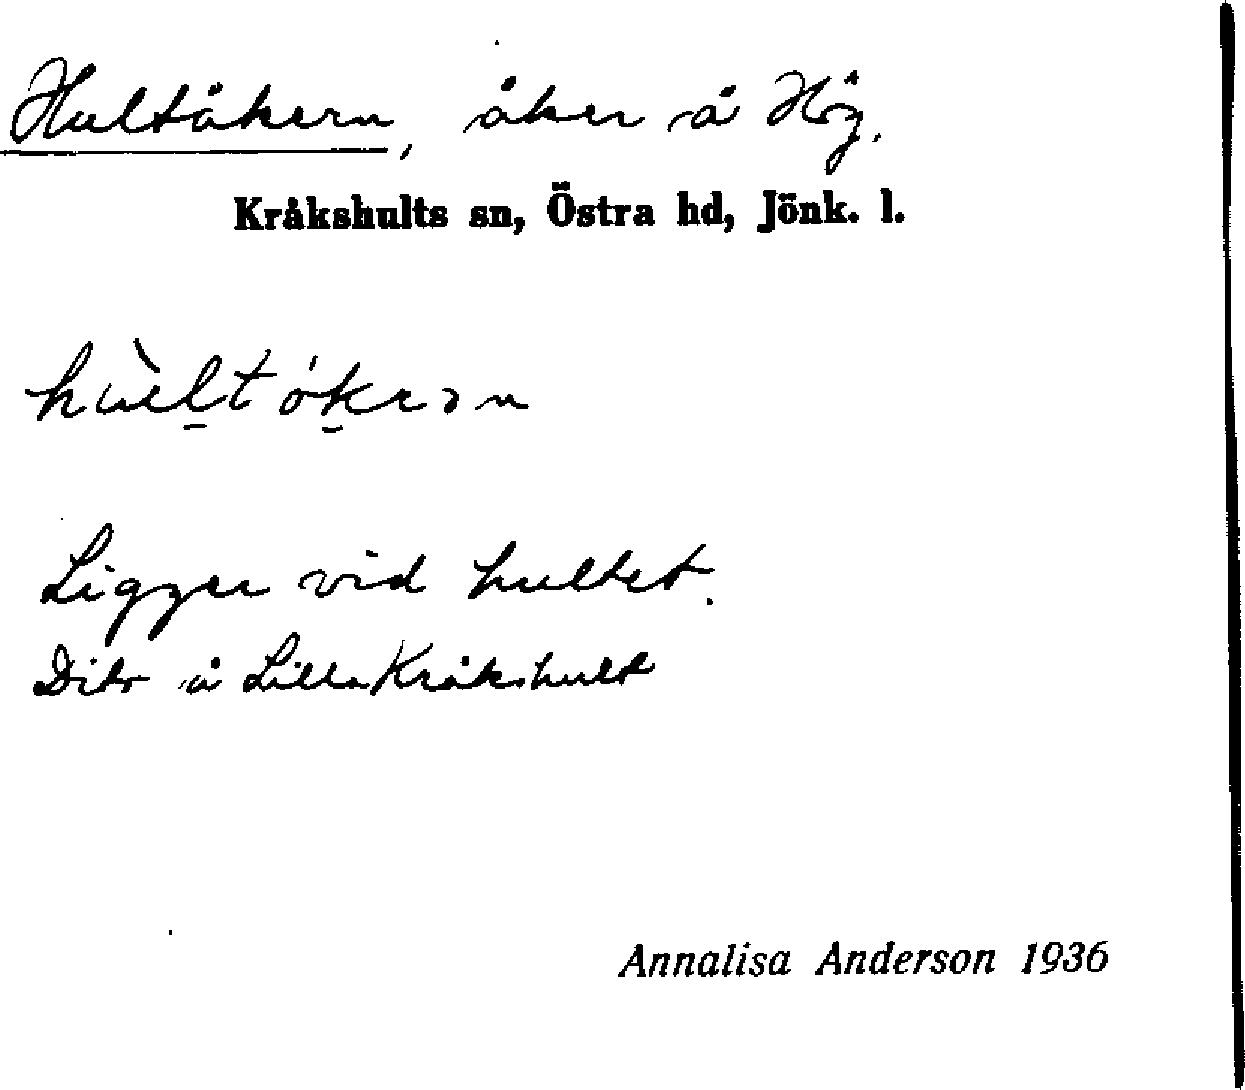 Hultåkern, åker å Hög.
Kråkshults sn, Östra hd, Jönk. l.
Ligger vid hultet.
Dito å Lilla Kråkshult
Annalisa Anderson 1936